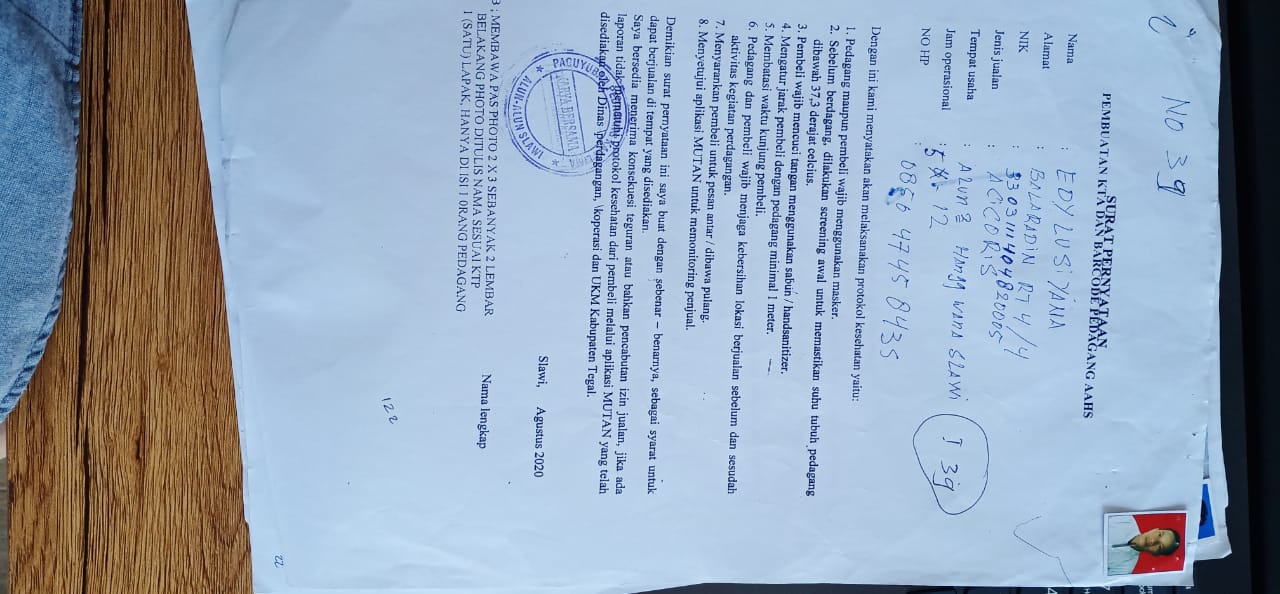 No 39
SURAT PERNYATAAN
PEMBUATAN KTA DAN BARCODE PEDAGANG AAHS
Nama : EDY LUSIYANA
Alamat : BALARADIN RT 4/4
NIK : 3303111404820005
Jenis jualan : ACCORIS
Tempat usaha : ALUN2 HANGGAWANA SLAWI
Jam operasional : 5 12
NO HP : 0856 4745 8435
I 39
Dengan ini kami menyatakan akan melaksanakan protokol kesehatan yaitu:
1. Pedagang maupun pembeli wajib menggunakan masker.
2. Sebelum berdagang, dilakukan screening awal untuk memastikan suhu tubuh pedagang
dibawah 37,3 derajat celcius.
3. Pembeli wajib mencuci tangan menggunakan sabun / handsanitizer.
4. Mengatur jarak pembeli dengan pedagang minimal 1 meter.
5. Membatasi waktu kunjung pembeli.
6. Pedagang dan pembeli wajib menjaga kebersihan lokasi berjualan sebelum dan sesudah
aktivitas kegiatan perdagangan.
7. Menyarankan pembeli untuk pesan antar / dibawa pulang.
8. Menyetujui aplikasi MUTAN untuk memonitoring penjual.
Demikian surat pernyataan ini saya buat dengan sebenar – benarnya, sebagai syarat untuk
dapat berjualan di tempat yang disediakan.
Saya bersedia menerima konsekuesi teguran atau bahkan pencabutan izin jualan, jika ada
laporan tidak mematuhi protokol kesehatan dari pembeli melalui aplikasi MUTAN yang telah
disediakan oleh Dinas \perdagangan, \koperasi dan UKM Kabupaten Tegal.
PAGUYUBAN
KARYA BERSAMA
ALUN-ALUN SLAWI
Slawi, Agustus 2020
Nama lengkap
B : MEMBAWA PAS PHOTO 2 X 3 SEBANYAK 2 LEMBAR
BELAKANG PHOTO DITULIS NAMA SESUAI KTP
1 (SATU) LAPAK, HANYA DI ISI 1 0RANG PEDAGANG
122
22